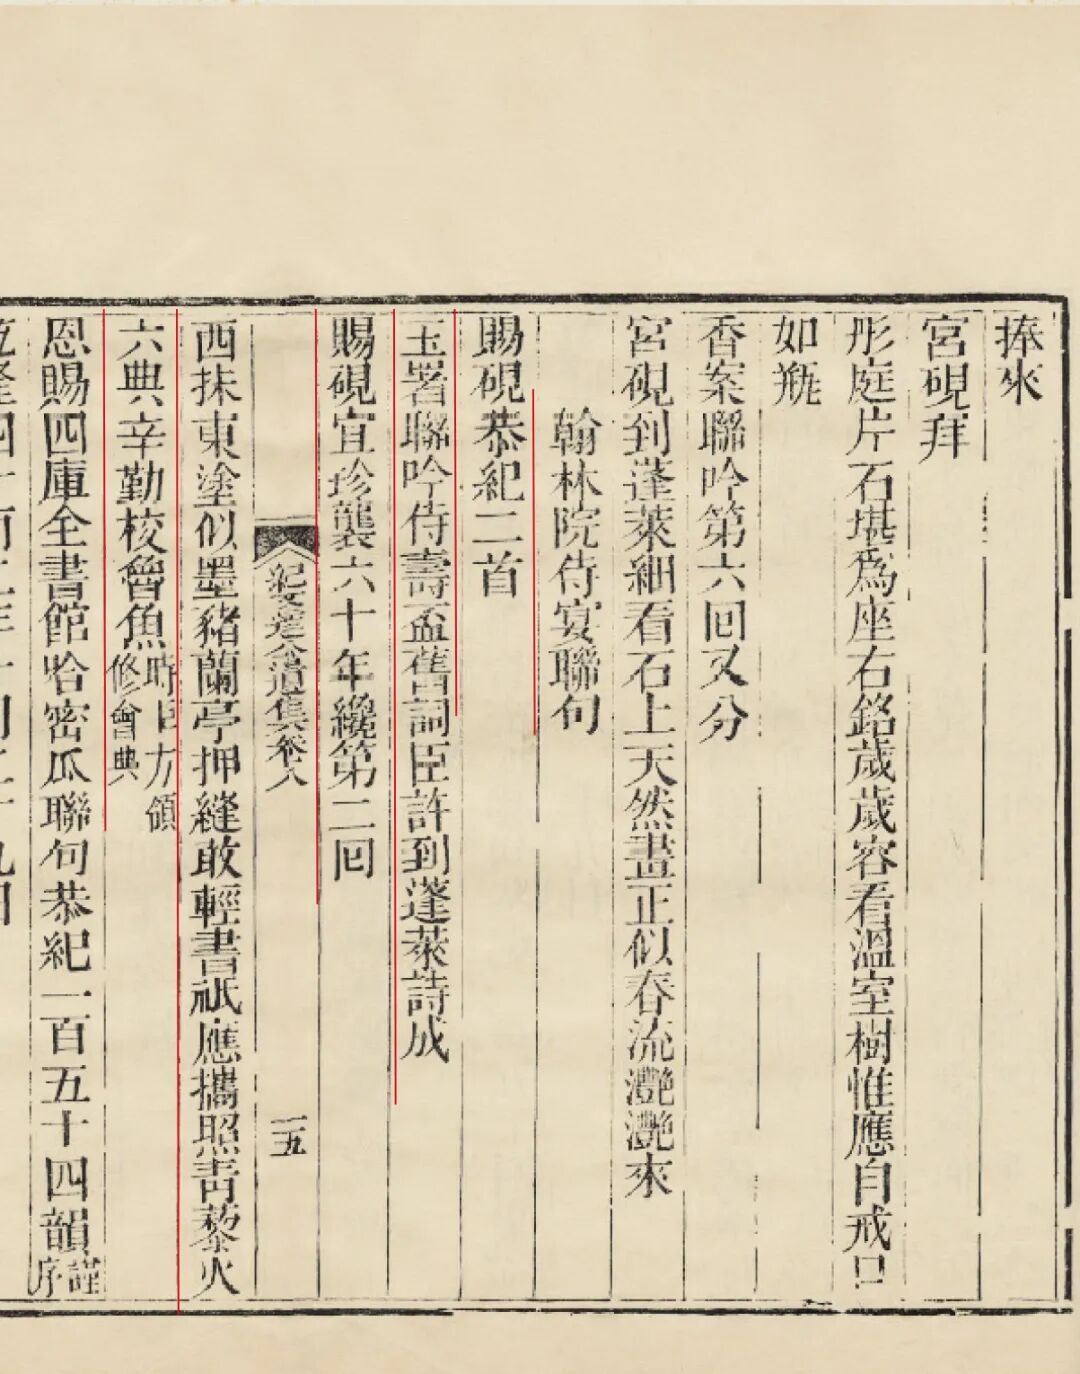 捧來
宮硯拜
彤庭片石堪為座右銘歲歲容看溫室樹惟應自戒口
如瓶
香案聯吟第六回又分
宮硯到蓬萊細看石上天然畫正似春流灔灔來
翰林院侍宴聯句
賜硯恭紀二首
玉署聯吟侍壽盃舊詞臣許到蓬萊詩成
賜硯宜珍襲六十年纔第二回
紀文達公遺集卷八
十五
西抹東塗似墨豬蘭亭押縫敢輕書祇應攜照青藜火
六典辛勤校魯魚時臣方領修會典
恩賜四庫全書館哈密瓜聯句恭紀一百五十四韻謹序